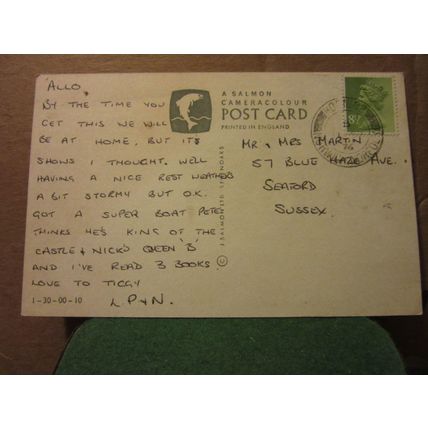 ALLO,
BY THE TIME YOU
GET THIS WE WILL
BE AT HOME, BUT ITS
SHOWS I THOUGHT. WELL
HAVING A NICE REST WEATHERS
A BIT STORMY BUT O.K.
GOT A SUPER BOAT PETE
THINKS HE'S KING OF THE
CASTLE & NICK'S QUEEN 'B'
AND I'VE READ 3 BOOKS
LOVE TO TIGGY
L. P & N.
1-30-00-10
A SALMON
CAMERACOLOUR
POST CARD
PRINTED IN ENGLAND
© J SALMON LTD SEVENOAKS
MR & MRS MARTIN
57 BLUE HAZE AVE.
SEAFORD
SUSSEX.